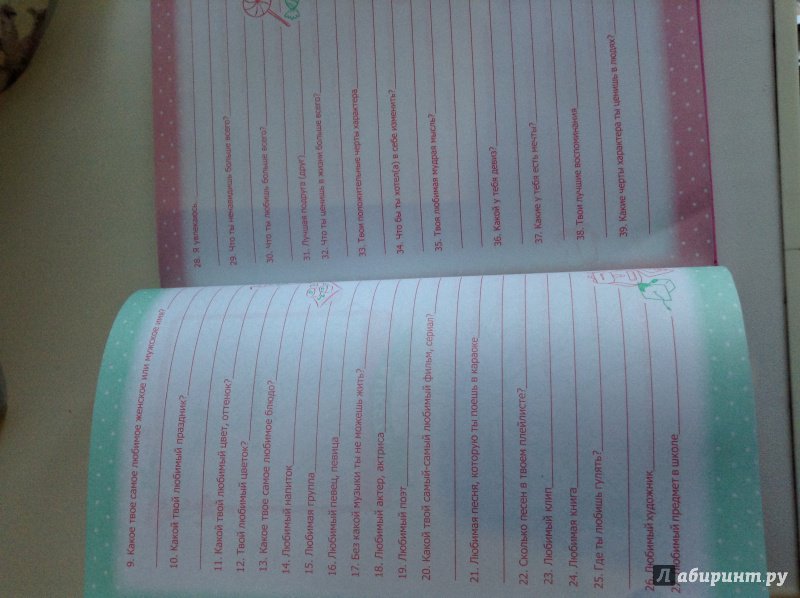 9. Какое твое самое любимое женское или мужское имя?
10. Какой твой любимый праздник?
11. Какой твой любимый цвет, оттенок?
12. Твой любимый цветок?
13. Какое твое самое любимое блюдо?
14. Любимый напиток
15. Любимая группа
16. Любимый певец, певица
17. Без какой музыки ты не можешь жить?
18. Любимый актер, актриса
19. Любимый поэт
20. Какой твой самый-самый любимый фильм, сериал?
21. Любимая песня, которую ты поешь в караоке
22. Сколько песен в твоем плейлисте?
23. Любимый клип
24. Любимая книга
25. Где ты любишь гулять?
26. Любимый художник
27. Любимый предмет в школе
28. Я увлекаюсь
29. Что ты ненавидишь больше всего?
30. Что ты любишь больше всего?
31. Лучшая подруга (друг)
32. Что ты ценишь в жизни больше всего?
33. Твои положительные черты характера
34. Что бы ты хотел(а) в себе изменить?
35. Твоя любимая мудрая мысль?
36. Какой у тебя девиз?
37. Какие у тебя есть мечты?
38. Твои лучшие воспоминания
39. Какие черты характера ты ценишь в людях?
Лабиринт.ру